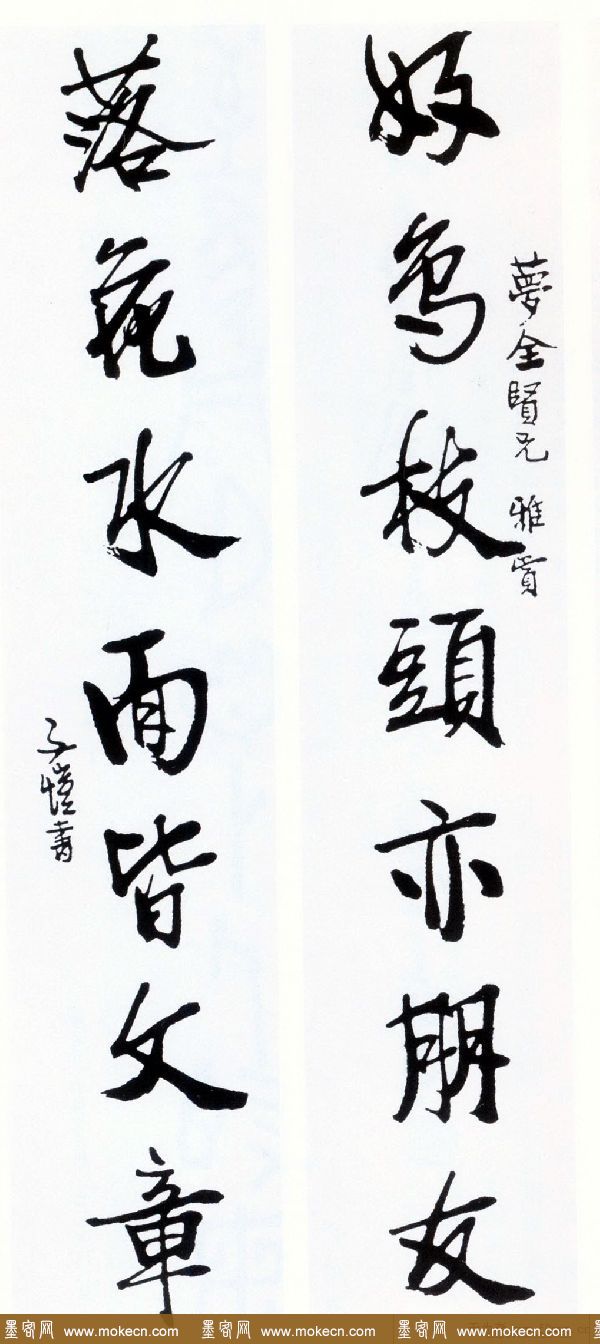 好鳥枝頭亦朋友
夢全賢兄 雅賞
落花水面皆文章
子愷書
墨客网 www.mokecn.com 墨客网 www.mokecn.com 墨客网 www.mokecn.com